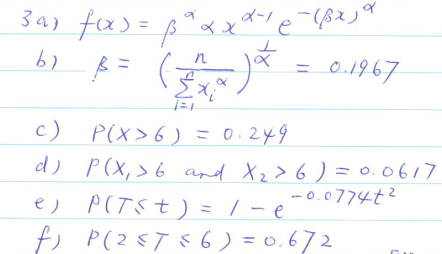 3a) f(x) = β^α α x^(α-1) e^(-(βx)^α)
b) β = (n / Σ_{i=1}^{n} x_i^α)^(1/α) = 0.1967
c) P(X>6) = 0.249
d) P(X₁>6 and X₂>6) = 0.0617
e) P(T≤t) = 1-e^(-0.0774t²)
f) P(2≤T≤6) = 0.672